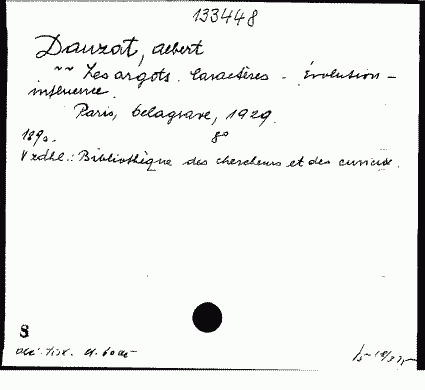 133448
Dauzat, Albert
~~ Les argots. Caractères - Évolution -
influence.
Paris, Delagrave, 1929.
189 s. 8°
V zdhl.: Bibliothèque des chercheurs et des curieux.
8